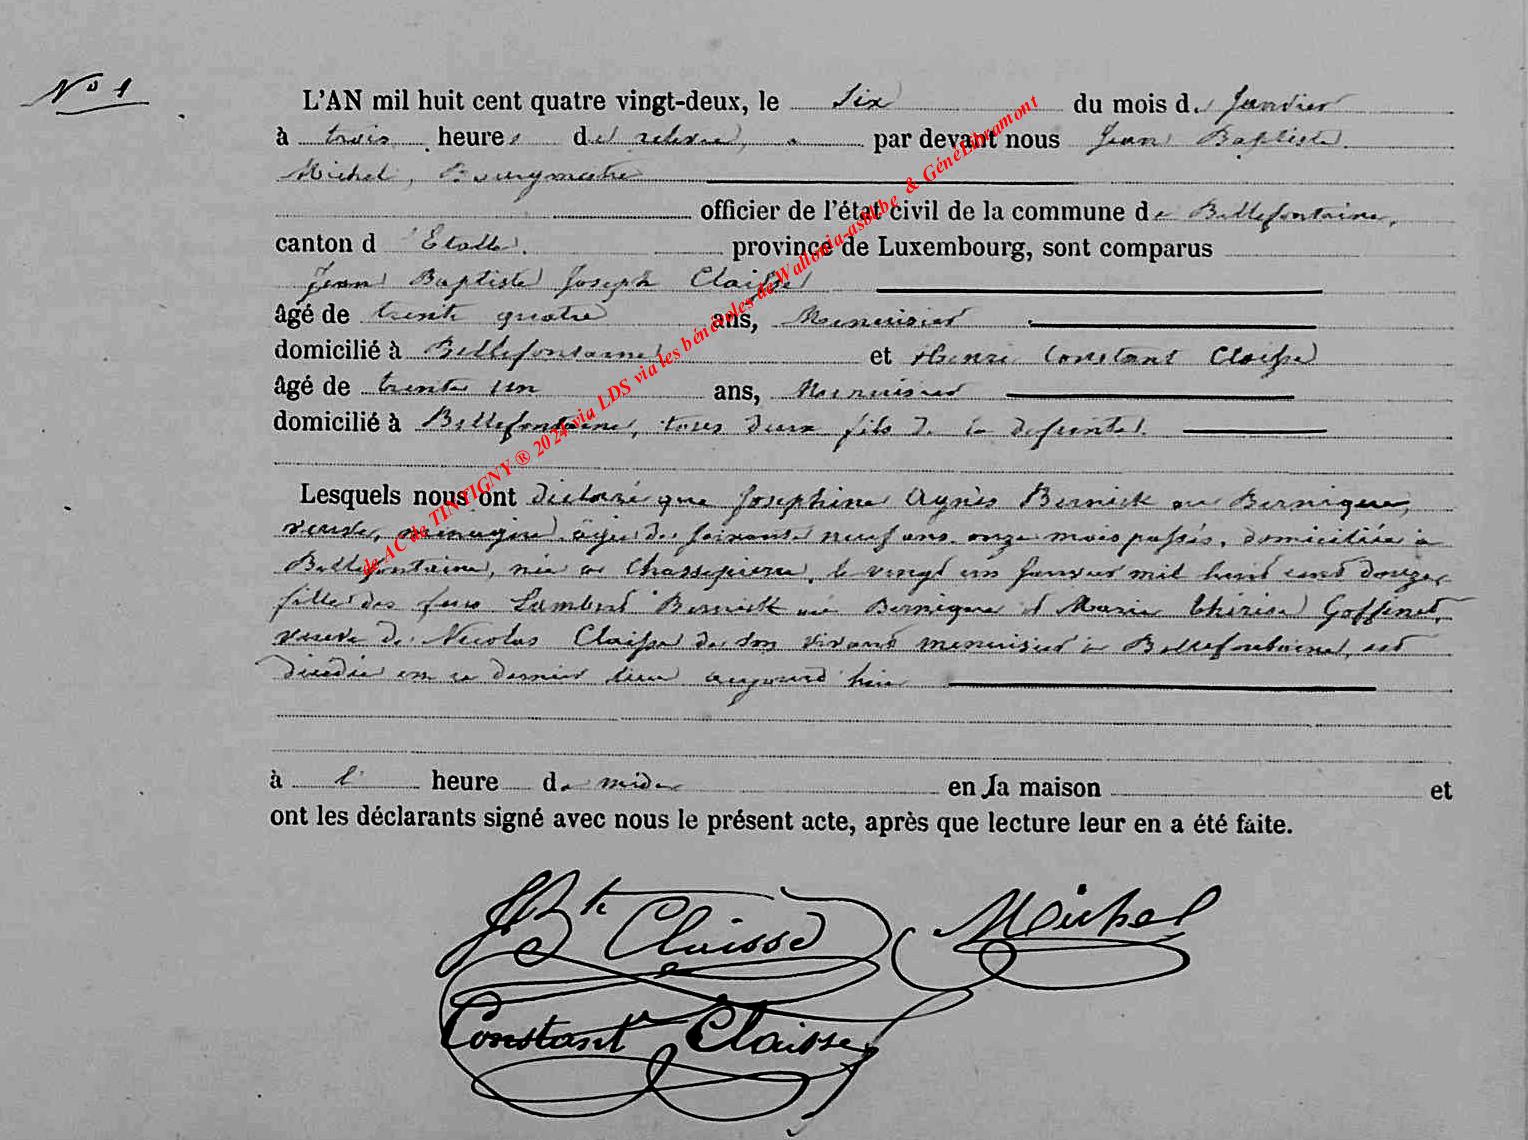 N° 1
L'AN mil huit cent quatre vingt-deux, le Six du mois de Janvier
à trois heures de relevée, par devant nous Jean Baptiste
Michel, Bourgmestre
officier de l'état civil de la commune de Bellefontaine,
canton d'Etalle. province de Luxembourg, sont comparus
Jean Baptiste Joseph Claisse
âgé de trente quatre ans, Menuisier
domicilié à Bellefontaine et Henri Constant Claisse
âgé de trente un ans, Menuisier
domicilié à Bellefontaine, tous deux fils de la défunte.
Lesquels nous ont déclaré que Joséphine Agnès Bernick ou Bernique,
veuve, ménagère âgée de soixante neuf ans onze mois passés, domiciliée à
Bellefontaine, née à Chassepierre, le vingt un Janvier mil huit cent douze,
fille des feus Lambert Bernick ou Bernique et Marie Thérèse Goffinet,
veuve de Nicolas Claisse de son vivant menuisier à Bellefontaine, est
décédée en ce dernier lieu aujourd'hui
à l' heure de midi en la maison et
ont les déclarants signé avec nous le présent acte, après que lecture leur en a été faite.
JBte Claisse Michel
Constant Claisse
de AC de TINTIGNY ® 2024 via LDS via les bénévoles de Wallonia-asbl.be & GénéLibramont